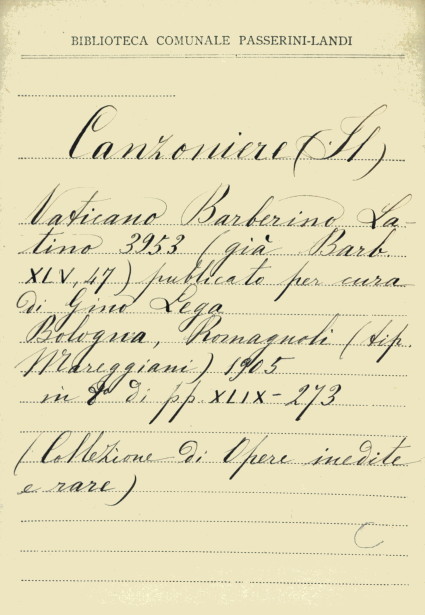 BIBLIOTECA COMUNALE PASSERINI-LANDI
Canzoniere (Il)
Vaticano Barberino La-
tino 3953 (già Barb.
XLV, 47) publicato per cura
di Gino Lega
Bologna, Romagnoli (tip.
Mareggiani) 1905
in 8° di pp. XLIX-273
(Collezione di Opere inedite
e rare)
C